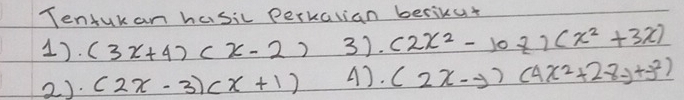 Tentukan hasil Perkalian berikut
1). (3x+4) (x-2) 3). (2x² - 10x) (x² + 3x)
2). (2x - 3)(x + 1) 4). (2x-y) (4x²+2xy+y²)